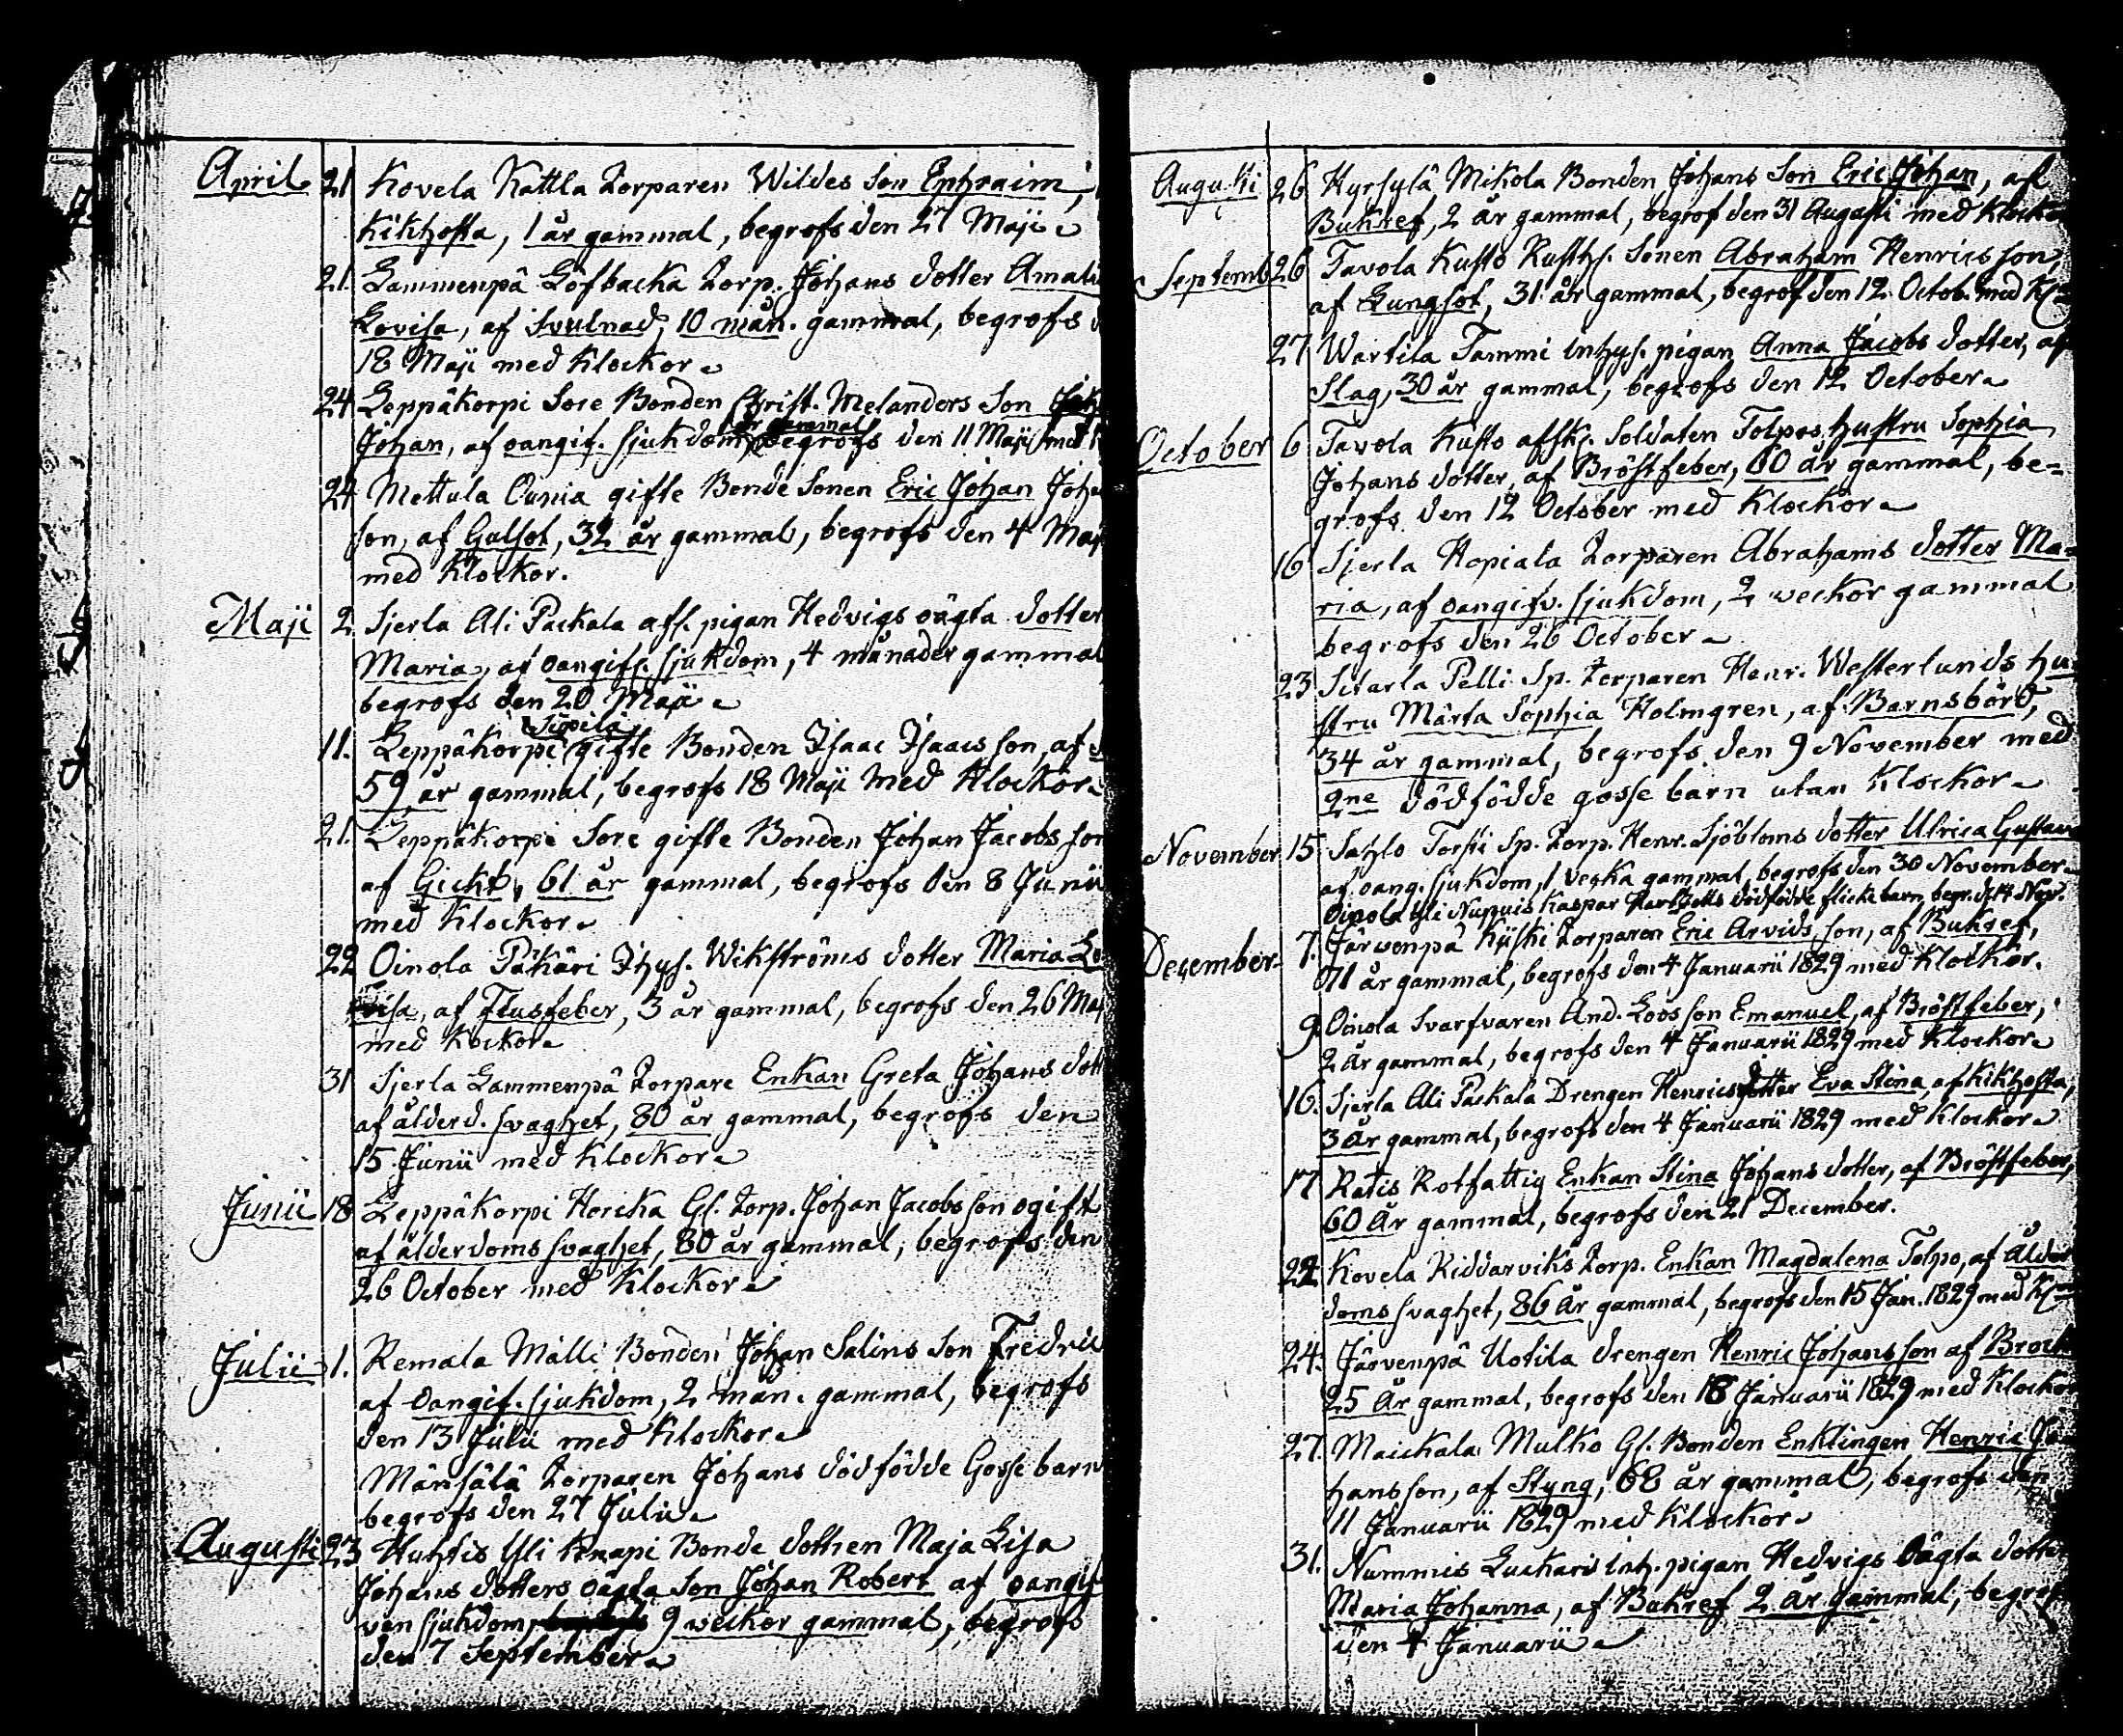 April 21 Kovela Kattla Torparen Wildes Son Ephraim,
Kikhosta, 1 år gammal, begrofs den 27 Maji
21. Lammenpä Löfbacka Torp. Johans dotter
Lovisa, af Svulnad, 10 mån. gammal, begrofs
18 Maji med Klockor
24 Leppäkorpi Sore Bonden Christ. Melanders Son
1 år gammal
Johan, af oangif. sjukdom, begrofs den 11 Maji med
24 Mettula Ounia gifte Bonde Sonen Eric Johan
son, af Gulsot, 32 år gammal, begrofs den 4
med Klockor.
Maji 2 Sjerla Ali Packala afl. pigan Hedvigs oägta dotter
Maria, af oangifv. sjukdom, 4 månader gammal
begrofs den 20 Maji
Sipilä
11. Leppäkorpi gifte Bonden Isaac Isaacs son, af
59 år gammal, begrofs 18 Maji med Klockor
21. Leppäkorpi Sore gifte Bonden Johan Jacobs son
af Gickt, 61 år gammal, begrofs den 8 Junii
med Klockor
22 Oinola Päkäri Ihys. Wikströms dotter Maria Lo
visa, af Flusfeber, 3 år gammal, begrofs den 26
med Kockor
31 Sjerla Lammenpä Torpare Enkan Greta Johans
af ålderd. svaghet, 80 år gammal, begrofs den
15 Junii med Klockor
Junii 18 Leppäkorpi Horcka Gl. Torp. Johan Jacobs son ogift
af ålderdoms svaghet, 80 år gammal, begrofs den
26 October med Klockor
Julii 1. Remala Mälli Bonden Johan Salins Son
af oangif. sjukdom, 2 mån. gammal, begrofs
den 13 Julii med Klockor
Mänsälä Torparen Johans dödfödde Gosse barn
begrofs den 27 Julii
Augusti 23 Huhtis Yli Knapi Bonde dottren Maja Lisa
Johans dotters oägta Son Johan Robert af oangif
ven sjukdom, 9 weckor gammal, begrofs
den 7 September
Augusti 26 Hyrsylä Mikola Bonden Johans Son Eric Johan, af
Bukref, 2 år gammal, begrof den 31 Augusti med
Septemb 26 Tavola Kusto Rusth. Sonen Abraham Henrics son,
af Lungsot, 31 år gammal, begrof den 12 Octob. med
27 Wartila Tammi inhys. pigan Anna Jacobs dotter, af
Slag, 30 år gammal, begrofs den 12 October
October 6 Tavola Kusto afsk. Soldaten Tolpos, hustru Sophia
Johans dotter, af Bröstfeber, 60 år gammal, be=
grofs den 12 October med Klockor
16 Sjerla Hopiala Torparen Abrahams dotter Ma=
ria, af oangifv. sjukdom, 2 weckor gammal
begrofs den 26 October
23 Pelli Sp. Torparen Henr. Westerlunds hu
stru Märta Sophia Holmgren, af Barnsbörd,
34 år gammal, begrofs den 9 November med
2ne dödfödde gosse barn utan Klockor
November 15 Sahlo Torp. Henr. Sjöbloms dotter Ulrica
af oang. sjukdom, 1 vecka gammal, begrofs den 30 November
Oinola Yli Nuppuis Kaspar dödfödde flicke barn, begr. d. 14 Nov.
December 7. Järwenpä Kyski Torparen Eric Arvids son, af Bukref,
71 år gammal, begrofs den 4 Januarii 1829 med Klockor.
9. Oinola Svarfvaren And. Loos son Emanuel, af Bröstfeber,
2 år gammal, begrofs den 4 Januarii 1829 med Klockor
16. Sjerla Ali Packala Drengen Henrics dotter Eva Stina, af Kikhosta,
3 år gammal, begrofs den 4 Januarii 1829 med Klockor
17 Ratis Rotfattig Enkan Stina Johans dotter, af Bröstfeber,
60 År gammal, begrofs den 21 December.
22 Kovela Riddarviks Torp. Enkan Magdalena Tolpo, af Ålder
doms svaghet, 86 År gammal, begrofs den 15 Jan. 1829 med
24. Järvenpä Uotila drengen Henric Johans son af
25 År gammal, begrofs den 18 Januarii 1829 med Klockor
27. Maickala Mulko Gl. Bonden Enklingen Henric Jo
hans son, af Styng, 68 år gammal, begrofs den
11 Januarii 1829 med Klockor
31. Nummis Luckari inh. pigan Hedvigs Oägta dotter
Maria Johanna, af Bukref 2 år gammal, begrof
den 4 Januarii